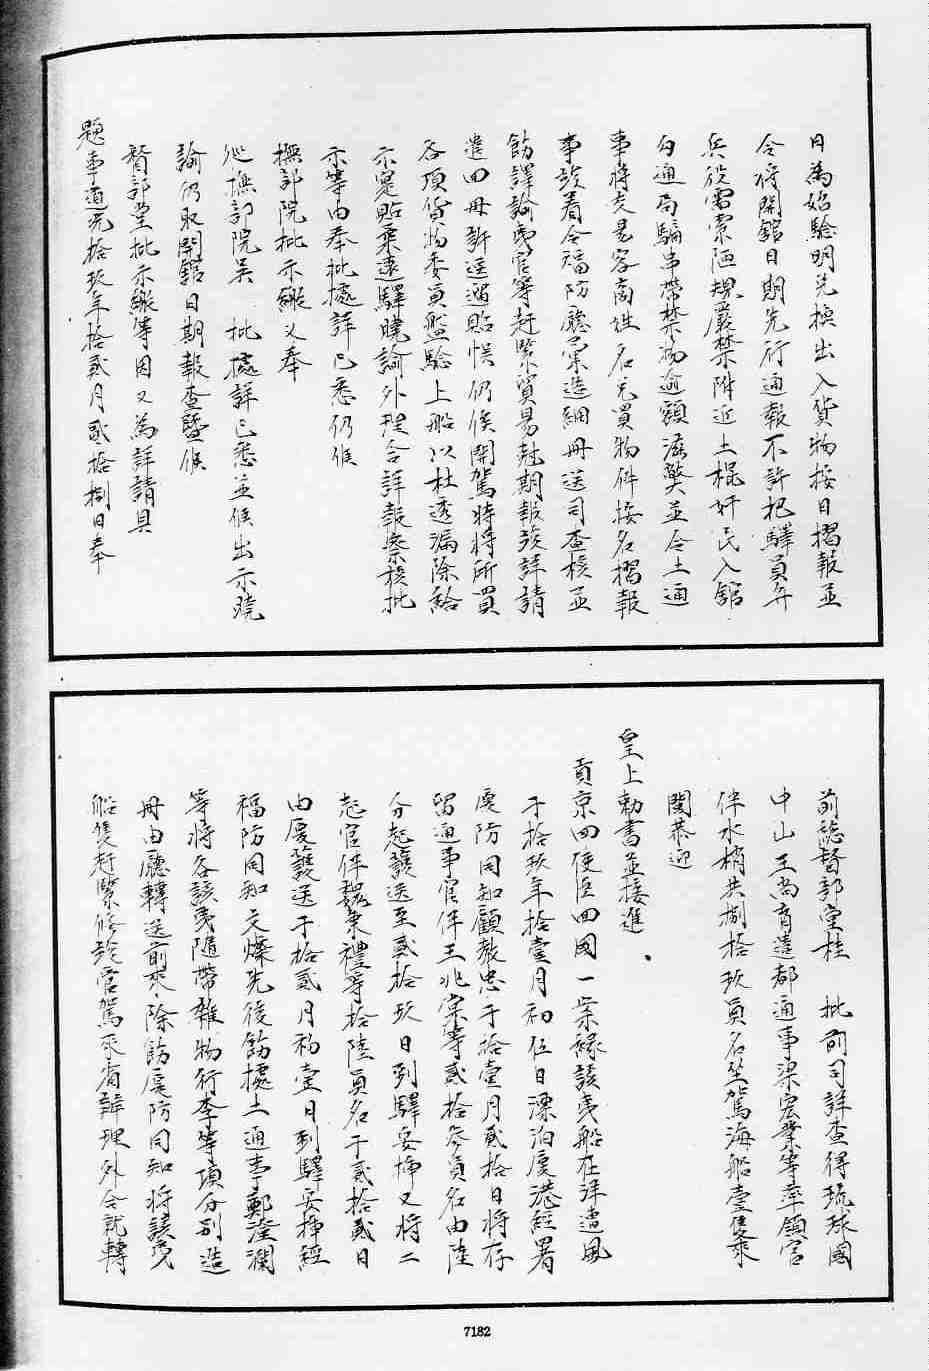 日為始驗明先換出入貨物按日摺報並
令將開館日期先行通報不許把驛員弁
兵役需索陋規嚴禁附近土棍奸民入館
勾通局騙串帶禁物逾額滋獘並令土通
事將交易客商姓名兌買物件按名摺報
事該着令福防廳彚造細冊送司查核並
飭譯諭夷官等赶緊貿易尅期報竣詳請
遣回毋許逗遛貽悞仍候開駕時將所買
各項貨物委員盤驗上船以杜透漏除給
示寔貼柔遠驛曉諭外理合詳報察核批
示等由奉批據詳已悉仍候
撫部院批示繳又奉
巡撫部院吳 批據詳已悉並候出示曉
諭仍取開館日期報查暨候
督部堂批示繳等因又為詳請具
題事道光拾玖年拾貳月貳拾捌日奉
前總督部堂桂 批前司詳查得琉球國
中山王尚育遣都通事梁宏業等率領官
伴水梢共捌拾玖員名坐駕海船壹隻來
閩恭迎
皇上勅書並接進
貢京回使臣回國一案緣該夷船在洋遭風
于拾玖年拾壹月初伍日漂泊廈港經署
廈防同知顧教忠于拾壹月貳拾日將存
留通事官伴王兆棠等貳拾叁員名由陸
分起護送至貳拾玖日到驛安揷又將二
起官伴魏秉禮等拾陸員名于貳拾貳日
由廈護送于拾貳月初壹日到驛安揷經
福防同知文燦先後飭據土通事鄭澄瀾
等將各該夷隨帶雜物行李等項分別造
冊由廳轉送前來除飭廈防同知將該夷
船隻赶緊修竣管駕來省詳理外合就轉
7182